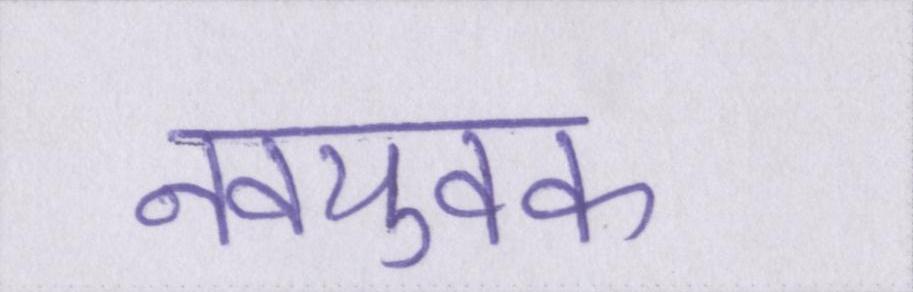 नवयुवक